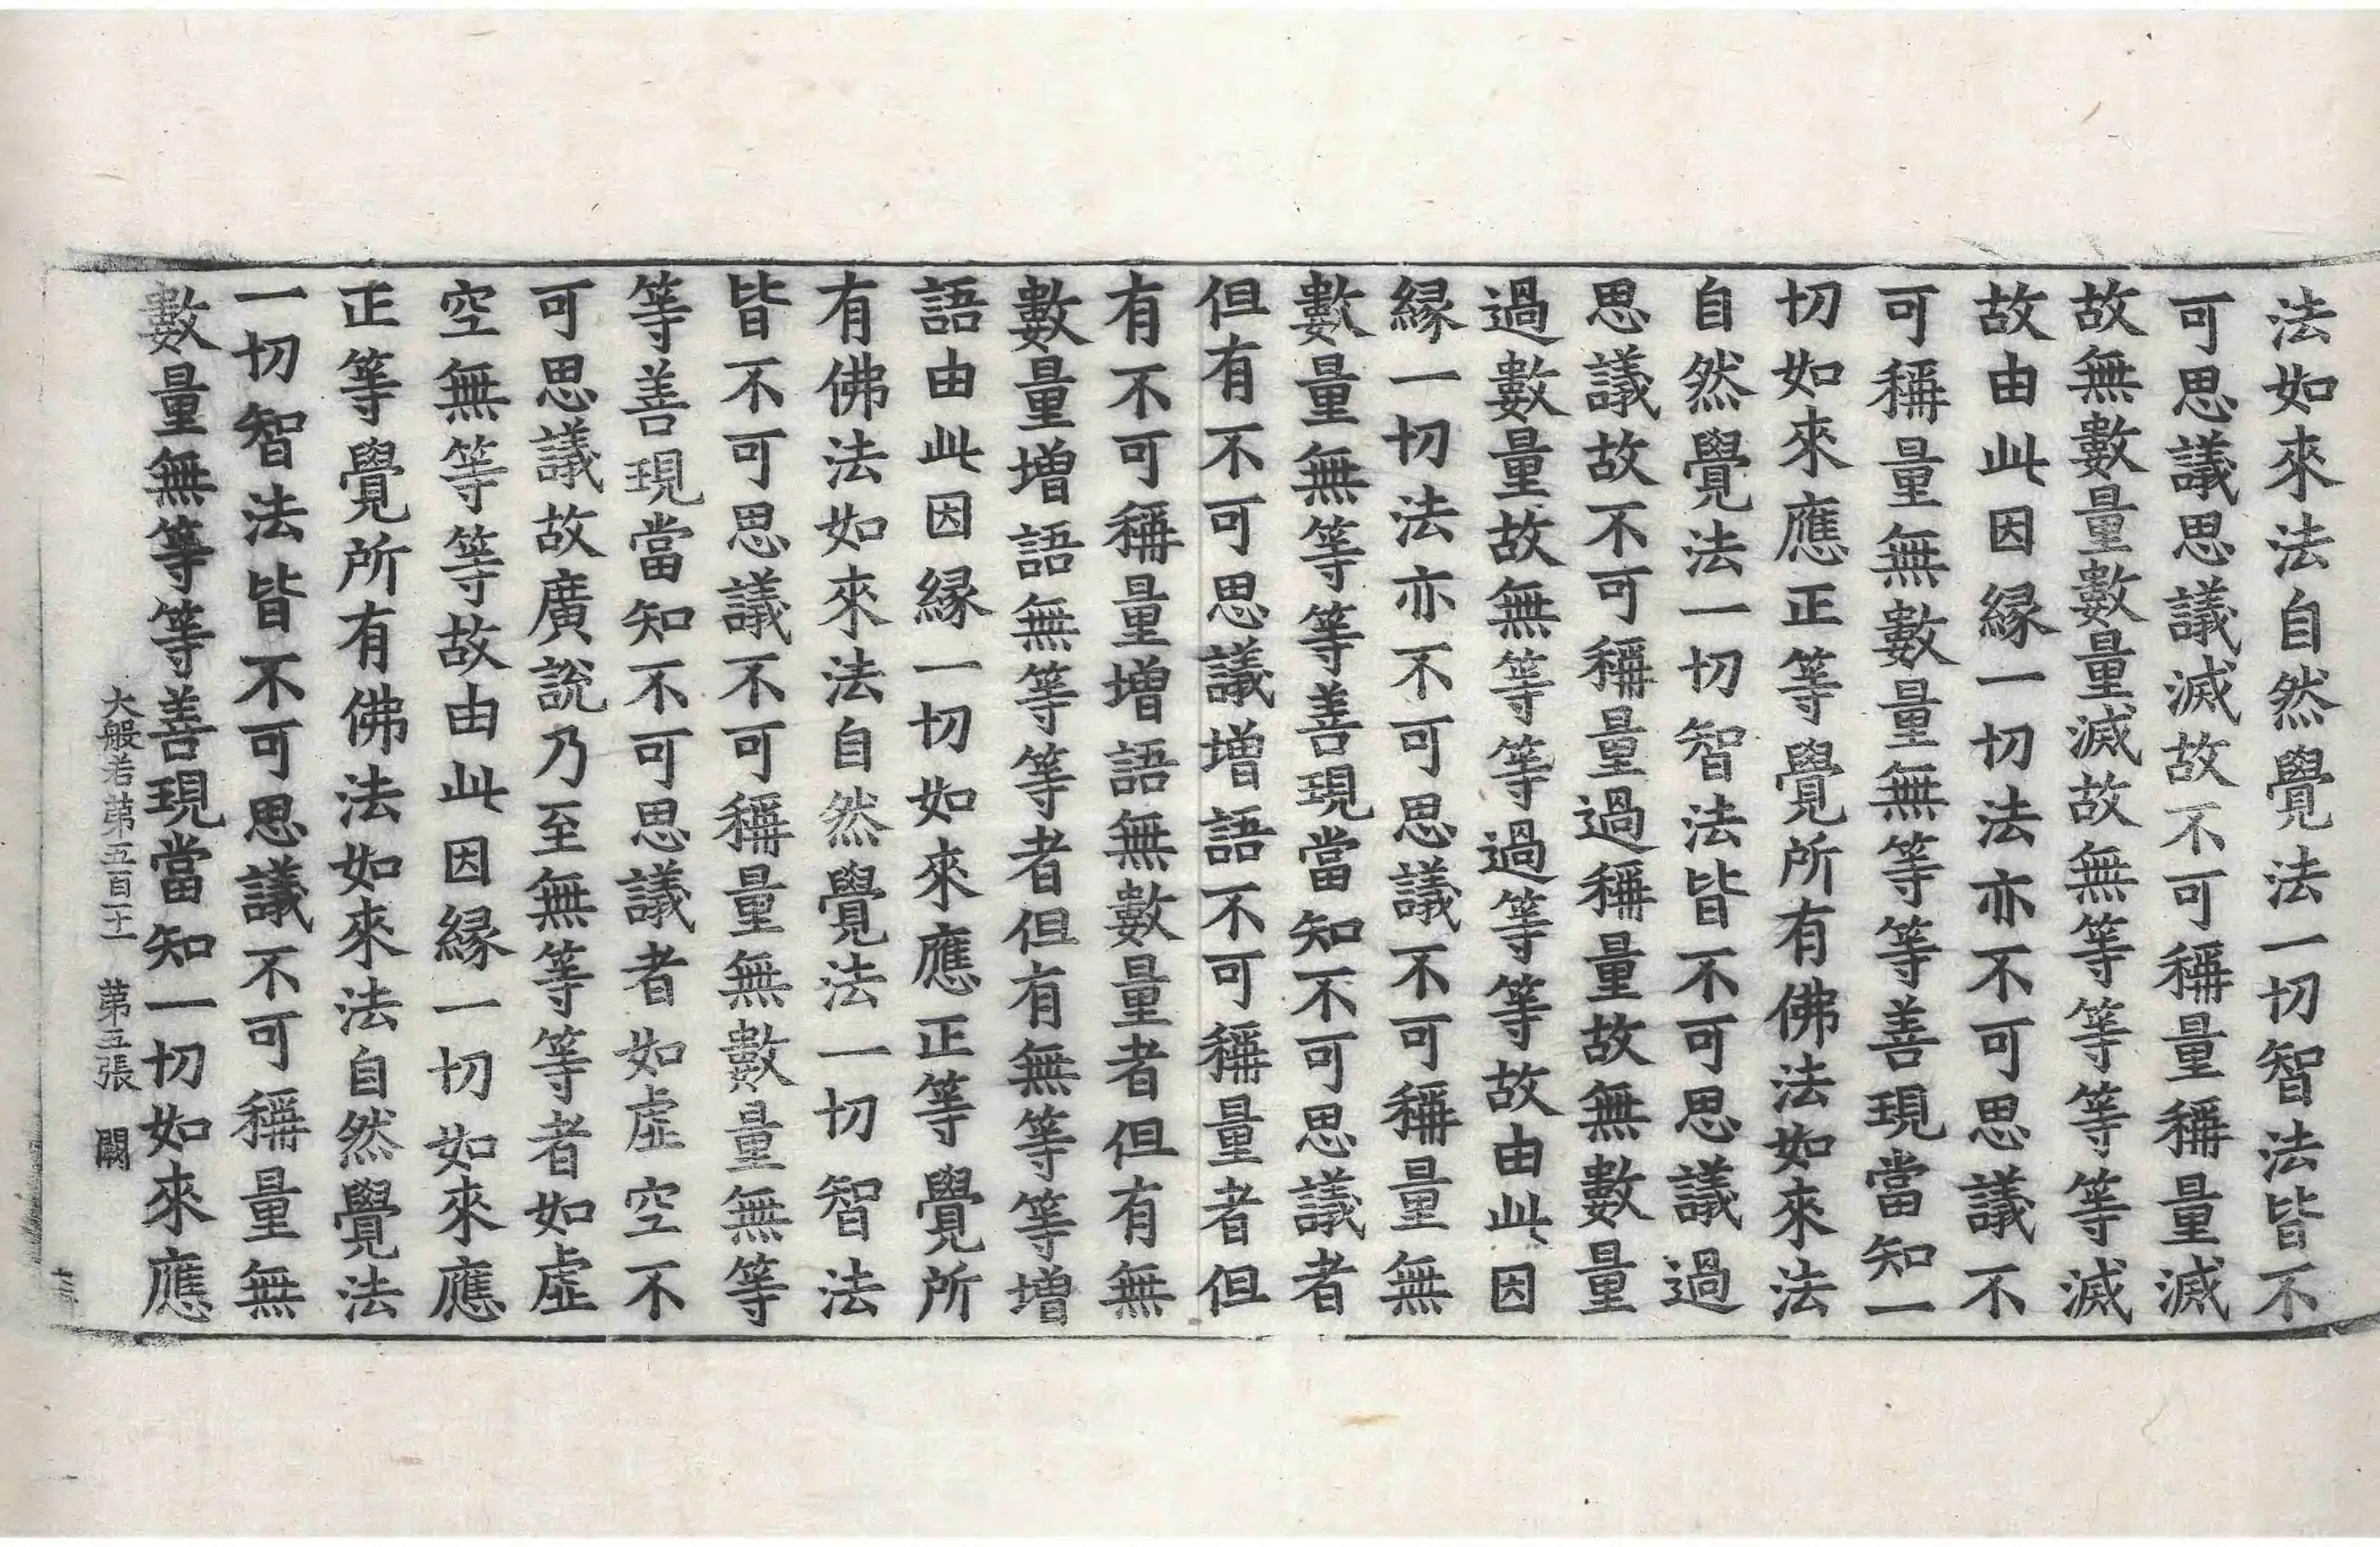 法如來法自然覺法一切智法皆不
可思議思議滅故不可稱量稱量滅
故無數量數量滅故無等等等等滅
故由此因緣一切法亦不可思議不
可稱量無數量無等等善現當知一
切如來應正等覺所有佛法如來法
自然覺法一切智法皆不可思議過
思議故不可稱量過稱量故無數量
過數量故無等等過等等故由此因
緣一切法亦不可思議不可稱量無
數量無等等善現當知不可思議者
但有不可思議增語不可稱量者但
有不可稱量增語無數量者但有無
數量增語無等等者但有無等等增
語由此因緣一切如來應正等覺所
有佛法如來法自然覺法一切智法
皆不可思議不可稱量無數量無等
等善現當知不可思議者如虛空不
可思議故廣說乃至無等等者如虛
空無等等故由此因緣一切如來應
正等覺所有佛法如來法自然覺法
一切智法皆不可思議不可稱量無
數量無等等善現當知一切如來應
大般若第五百十一 第五張 闕